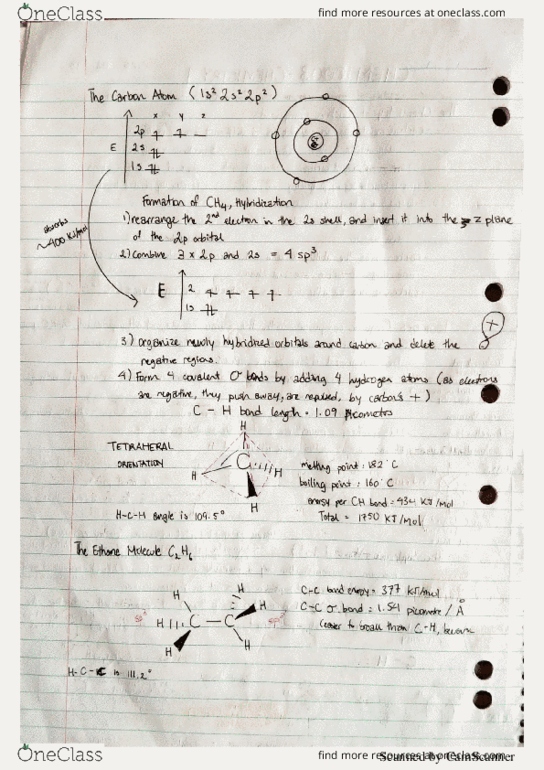 OneClass
find more resources at oneclass.com
The Carbon Atom (1s² 2s² 2p²)
x y z
2p
E
2s
1s
absorbs
~400 KJ/mol
Formation of CH₄, Hybridization
1) rearrange the 2nd electron in the 2s shell, and insert it into the z plane
of the 2p orbital
2) combine 3 x 2p and 2s = 4 sp³
E
2
1s
+
3) organize newly hybridized orbitals around carbon and delete the
negative regions.
4) Form 4 covalent σ bonds by adding 4 hydrogen atoms (as electrons
are negative, they push away, are repulsed, by carbon's +)
C - H bond length = 1.09 picometres
H
TETRAHERAL
ORIENTATION
C
H
H
H
melting point: 182°C
boiling point: 160°C
energy per CH bond = 434 KJ/mol
Total = 1750 KJ/mol
H-C-H angle is 109.5°
The Ethane Molecule C₂H₆
C-C bond energy = 377 kJ/mol
C-C σ bond = 1.54 picometre / Å
easier to break than C-H, because
H
H
H
sp³
H
C - C
sp³
H
H
H-C-C is 111.2°
OneClass
find more resources at oneclass.com
Scanned by CamScanner